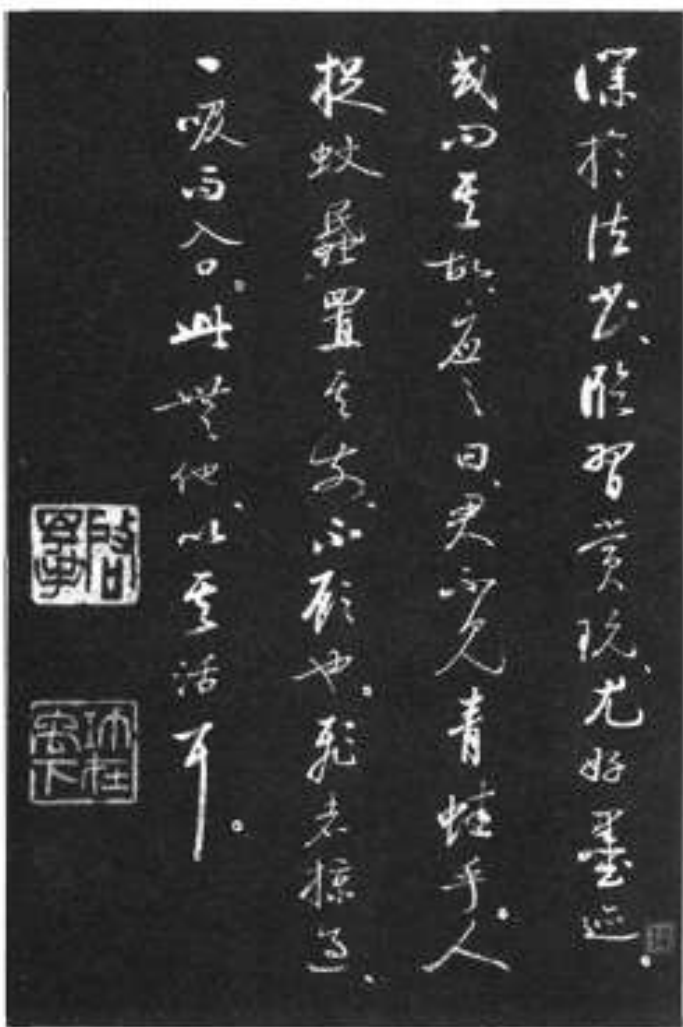 僕於法書、臨習賞玩、尤好墨迹。
或問其故、應之曰、君不見青蛙乎。人
捉蚊蝱置其前、不顧也。飛者掠過、
一吸而入口。此無他、以其活耳。